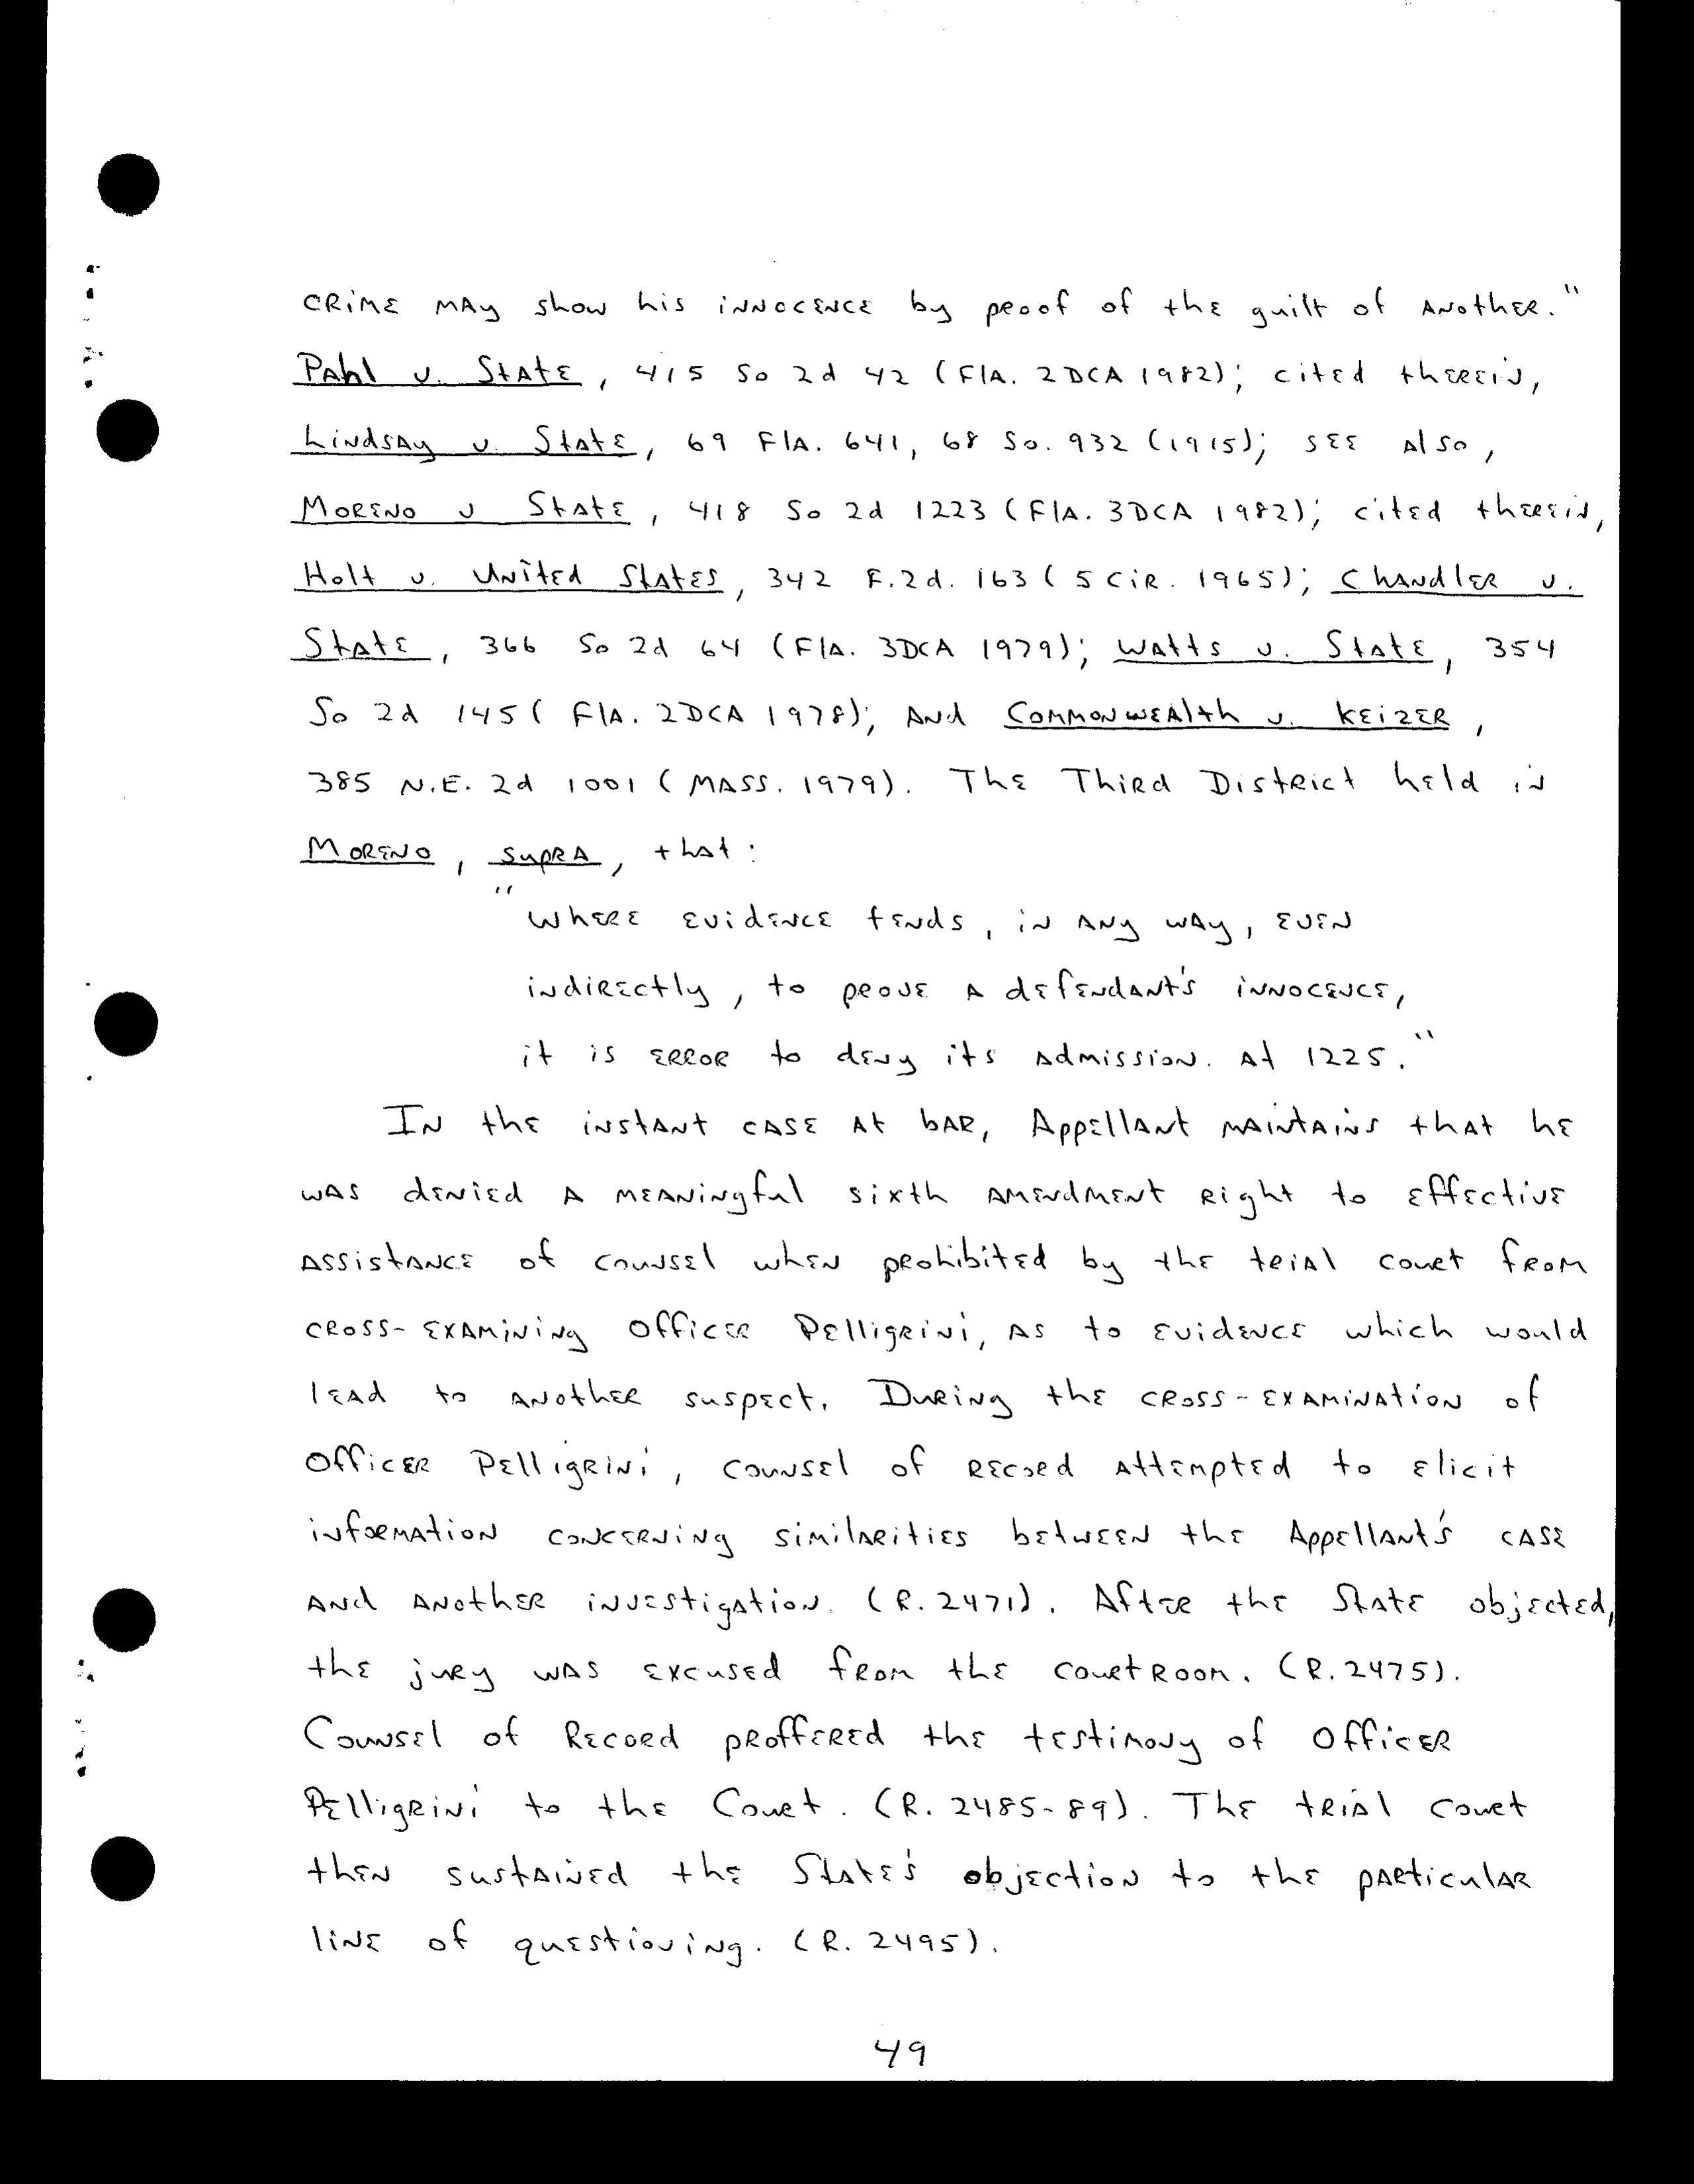 crime may show his innocence by proof of the guilt of another."
Pahl v. State, 415 So 2d 42 (Fla. 2DCA 1982); cited therein,
Lindsay v. State, 69 Fla. 641, 68 So. 932 (1915); see also,
Moreno v State, 418 So 2d 1223 (Fla. 3DCA 1982); cited therein,
Holt v. United States, 342 F.2d. 163 (5 Cir. 1965); Chandler v.
State, 366 So 2d 64 (Fla. 3DCA 1979); Watts v. State, 354
So 2d 145 (Fla. 2DCA 1978); and Commonwealth v. Keizer,
385 N.E. 2d 1001 (Mass. 1979). The Third District held in
Moreno, supra, that:
"Where evidence tends, in any way, even
indirectly, to prove a defendant's innocence,
it is error to deny its admission. At 1225."
In the instant case at bar, Appellant maintains that he
was denied a meaningful sixth amendment right to effective
assistance of counsel when prohibited by the trial court from
cross-examining Officer Pelligrini, as to evidence which would
lead to another suspect. During the cross-examination of
Officer Pelligrini, counsel of record attempted to elicit
information concerning similarities between the Appellant's case
and another investigation. (R. 2471). After the State objected,
the jury was excused from the courtroom. (R. 2475).
Counsel of Record proffered the testimony of Officer
Pelligrini to the Court. (R. 2485-89). The trial court
then sustained the State's objection to the particular
line of questioning. (R. 2495).
49